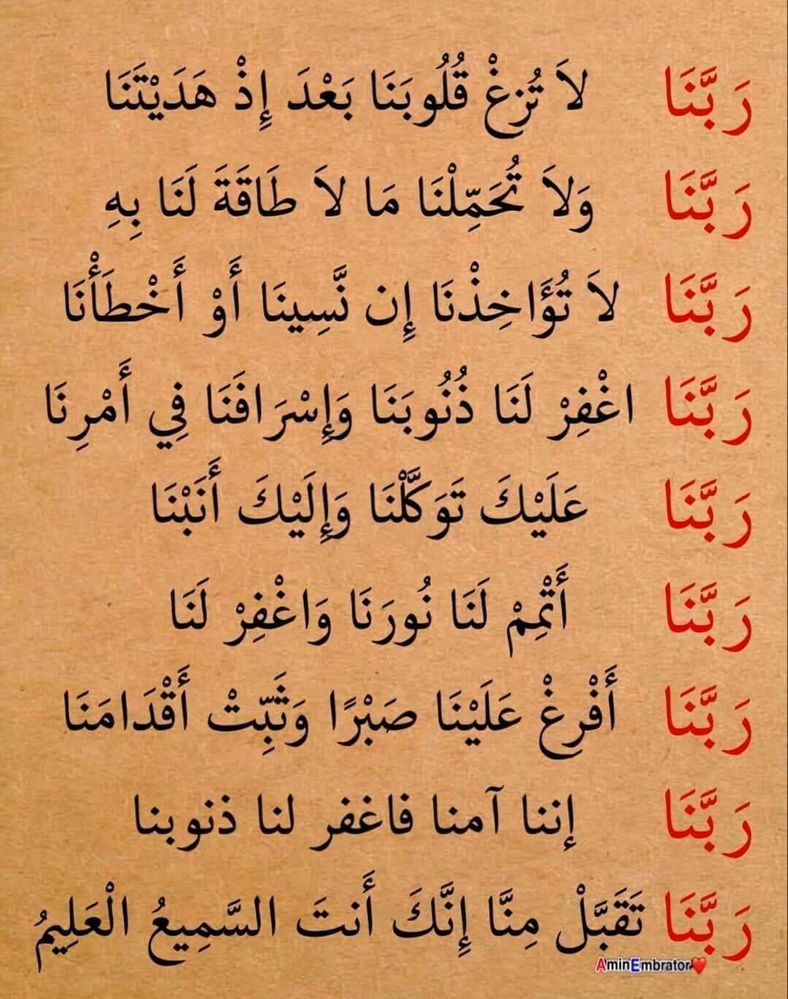 رَبَّنَا لاَ تُزِغْ قُلُوبَنَا بَعْدَ إِذْ هَدَيْتَنَا
رَبَّنَا وَلاَ تُحَمِّلْنَا مَا لاَ طَاقَةَ لَنَا بِهِ
رَبَّنَا لاَ تُؤَاخِذْنَا إِن نَّسِينَا أَوْ أَخْطَأْنَا
رَبَّنَا اغْفِرْ لَنَا ذُنُوبَنَا وَإِسْرَافَنَا فِي أَمْرِنَا
رَبَّنَا عَلَيْكَ تَوَكَّلْنَا وَإِلَيْكَ أَنَبْنَا
رَبَّنَا أَتْمِمْ لَنَا نُورَنَا وَاغْفِرْ لَنَا
رَبَّنَا أَفْرِغْ عَلَيْنَا صَبْرًا وَثَبِّتْ أَقْدَامَنَا
رَبَّنَا إننا آمنا فاغفر لنا ذنوبنا
رَبَّنَا تَقَبَّلْ مِنَّا إِنَّكَ أَنتَ السَّمِيعُ الْعَلِيمُ
AminEmbrator